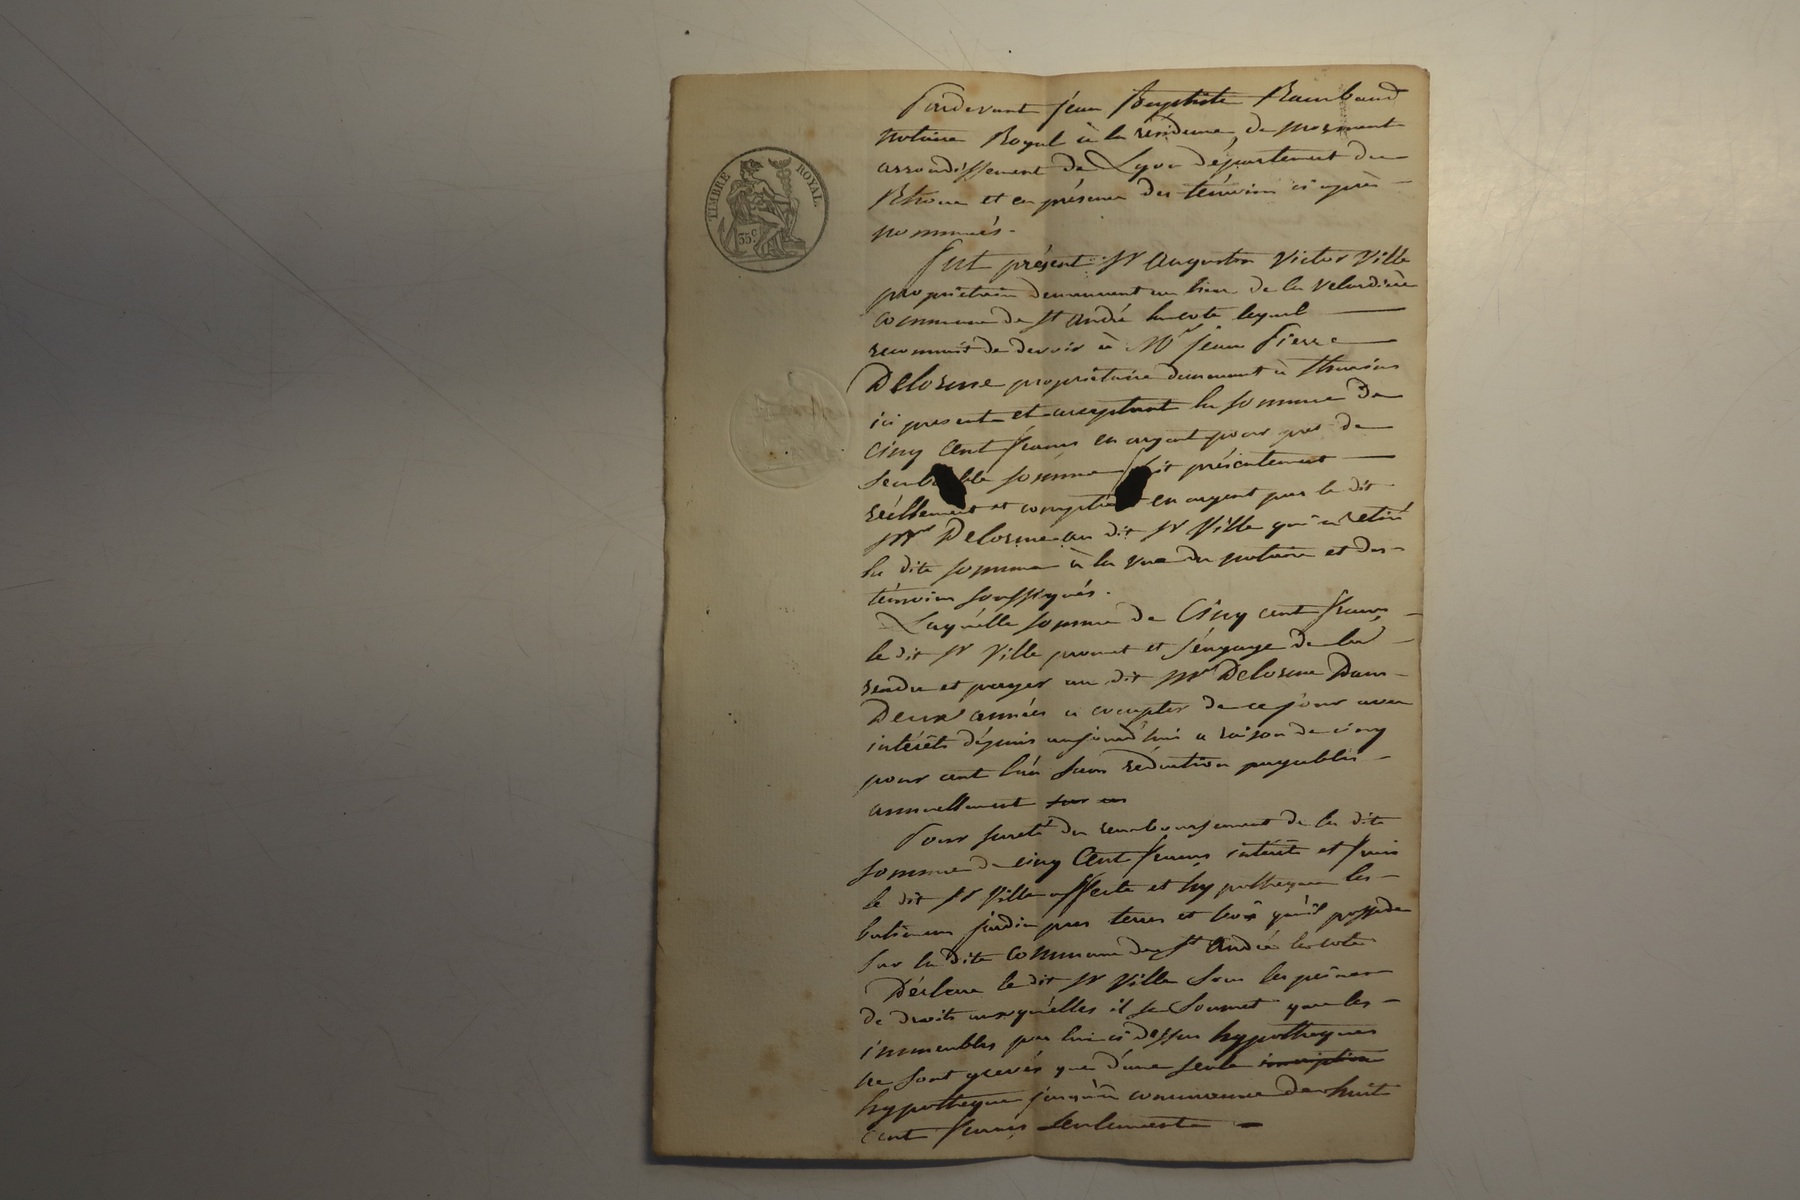 TIMBRE ROYAL.
35 c.
Pardevant jean Baptiste Rambaud
notaire Royal à la résidence de mornant
arrondissement de Lyon département du
Rhone et en présence des témoins ci après
nommés.
fut présent Sr Augustin Victor Ville
propriétaire demeurant au lieu de la
commune de St andré la cote lequel
reconnait de devoir à Mr jean Pierre
Delorme propriétaire demeurant à thurins
ici present et acceptant la somme de
Cinq cent francs en argent pour pret de
semblable somme fait présentement
réellement et comptée en argent par le dit
Mr Delorme au dit Sr Ville qui a retiré
la dite somme à la vue du notaire et des
témoins soussignés.
Laquelle somme de Cinq cent francs
le dit Sr Ville promet et s'engage de la
rendre et payer au dit Mr Delorme Dans
Deux années a compter de ce jour avec
intérêts dépuis aujourd'hui a raison de cinq
pour cent l'an sans réduction payables
annuellement
Pour sureté du remboursement de la dite
somme de cinq Cent francs intérêts et frais
le dit Sr Ville affecte et hypotheque les
batimens jardin pres terres et bois qu'il possede
sur la dite commune de St André la cote
Déclare le dit Sr Ville sous les peines
de droits auxquelles il se soumet que les
immeubles par lui ci dessus hypotheques
ne sont grevés que d'une seule inscription
hypotheque jusqu'a concurrence de huit
cent francs seulement